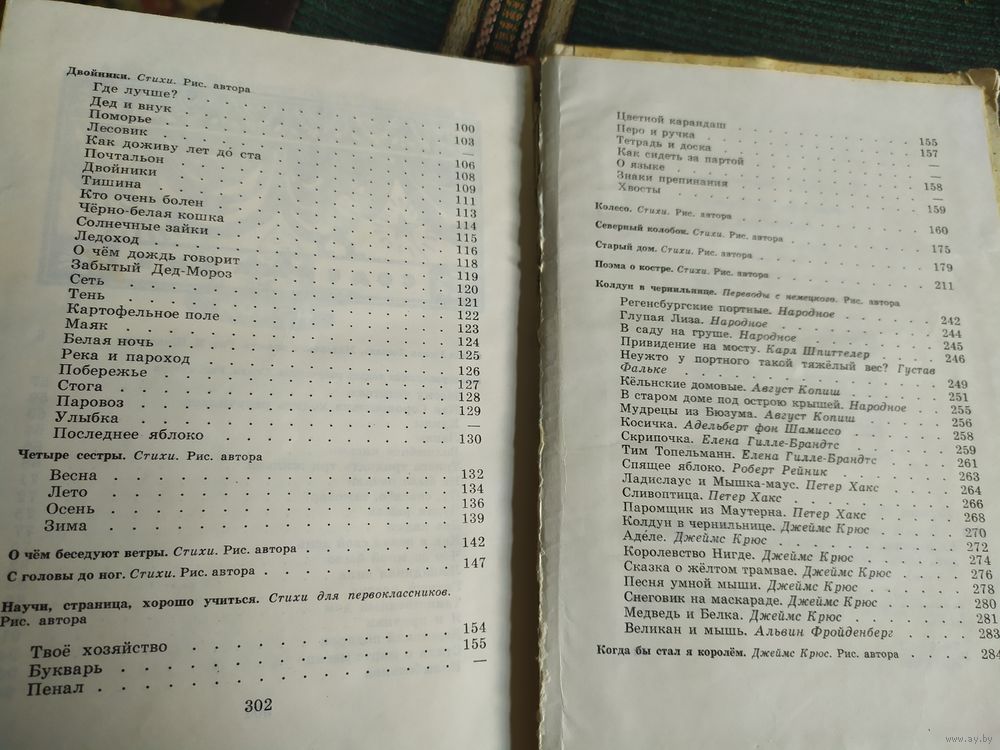 Двойники. Стихи. Рис. автора
Где лучше? . . . 100
Дед и внук . . . 103
Поморье . . . —
Лесовик . . . 106
Как доживу лет до ста . . . 108
Почтальон . . . 109
Двойники . . . 111
Тишина . . . 113
Кто очень болен . . . 114
Чёрно-белая кошка . . . 115
Солнечные зайки . . . 116
Ледоход . . . 118
О чём дождь говорит . . . 119
Забытый Дед-Мороз . . . 120
Сеть . . . 121
Тень . . . 122
Картофельное поле . . . 123
Маяк . . . 124
Белая ночь . . . 125
Река и пароход . . . 126
Побережье . . . 127
Стога . . . 128
Паровоз . . . 129
Улыбка . . . —
Последнее яблоко . . . 130
Четыре сестры. Стихи. Рис. автора
Весна . . . 132
Лето . . . 134
Осень . . . 136
Зима . . . 139
О чём беседуют ветры. Стихи. Рис. автора . . . 142
С головы до ног. Стихи. Рис. автора . . . 147
Научи, страница, хорошо учиться. Стихи для первоклассников.
Рис. автора
Твоё хозяйство . . . 154
Букварь . . . 155
Пенал . . . —
302
Цветной карандаш . . . 155
Перо и ручка . . . 157
Тетрадь и доска . . . —
Как сидеть за партой . . . —
О языке . . . 158
Знаки препинания . . . —
Хвосты . . . 159
Колесо. Стихи. Рис. автора . . . 160
Северный колобок. Стихи. Рис. автора . . . 175
Старый дом. Стихи. Рис. автора . . . 179
Поэма о костре. Стихи. Рис. автора . . . 211
Колдун в чернильнице. Переводы с немецкого. Рис. автора
Регенсбургские портные. Народное . . . 242
Глупая Лиза. Народное . . . 244
В саду на груше. Народное . . . 245
Привидение на мосту. Карл Шпиттелер . . . 246
Неужто у портного такой тяжёлый вес? Густав
Фальке . . . 249
Кёльнские домовые. Август Копиш . . . 251
В старом доме под острою крышей. Народное . . . 255
Мудрецы из Бюзума. Август Копиш . . . 256
Косичка. Адельберт фон Шамиссо . . . 258
Скрипочка. Елена Гилле-Брандтс . . . 259
Тим Топельманн. Елена Гилле-Брандтс . . . 261
Спящее яблоко. Роберт Рейник . . . 263
Ладислаус и Мышка-маус. Петер Хакс . . . 264
Сливоптица. Петер Хакс . . . 266
Паромщик из Маутерна. Петер Хакс . . . 268
Колдун в чернильнице. Джеймс Крюс . . . 270
Аделе. Джеймс Крюс . . . 272
Королевство Нигде. Джеймс Крюс . . . 274
Сказка о жёлтом трамвае. Джеймс Крюс . . . 276
Песня умной мыши. Джеймс Крюс . . . 278
Снеговик на маскараде. Джеймс Крюс . . . 280
Медведь и Белка. Джеймс Крюс . . . 281
Великан и мышь. Альвин Фройденберг . . . 283
Когда бы стал я королём. Джеймс Крюс. Рис. автора . . . 284
www.ay.by